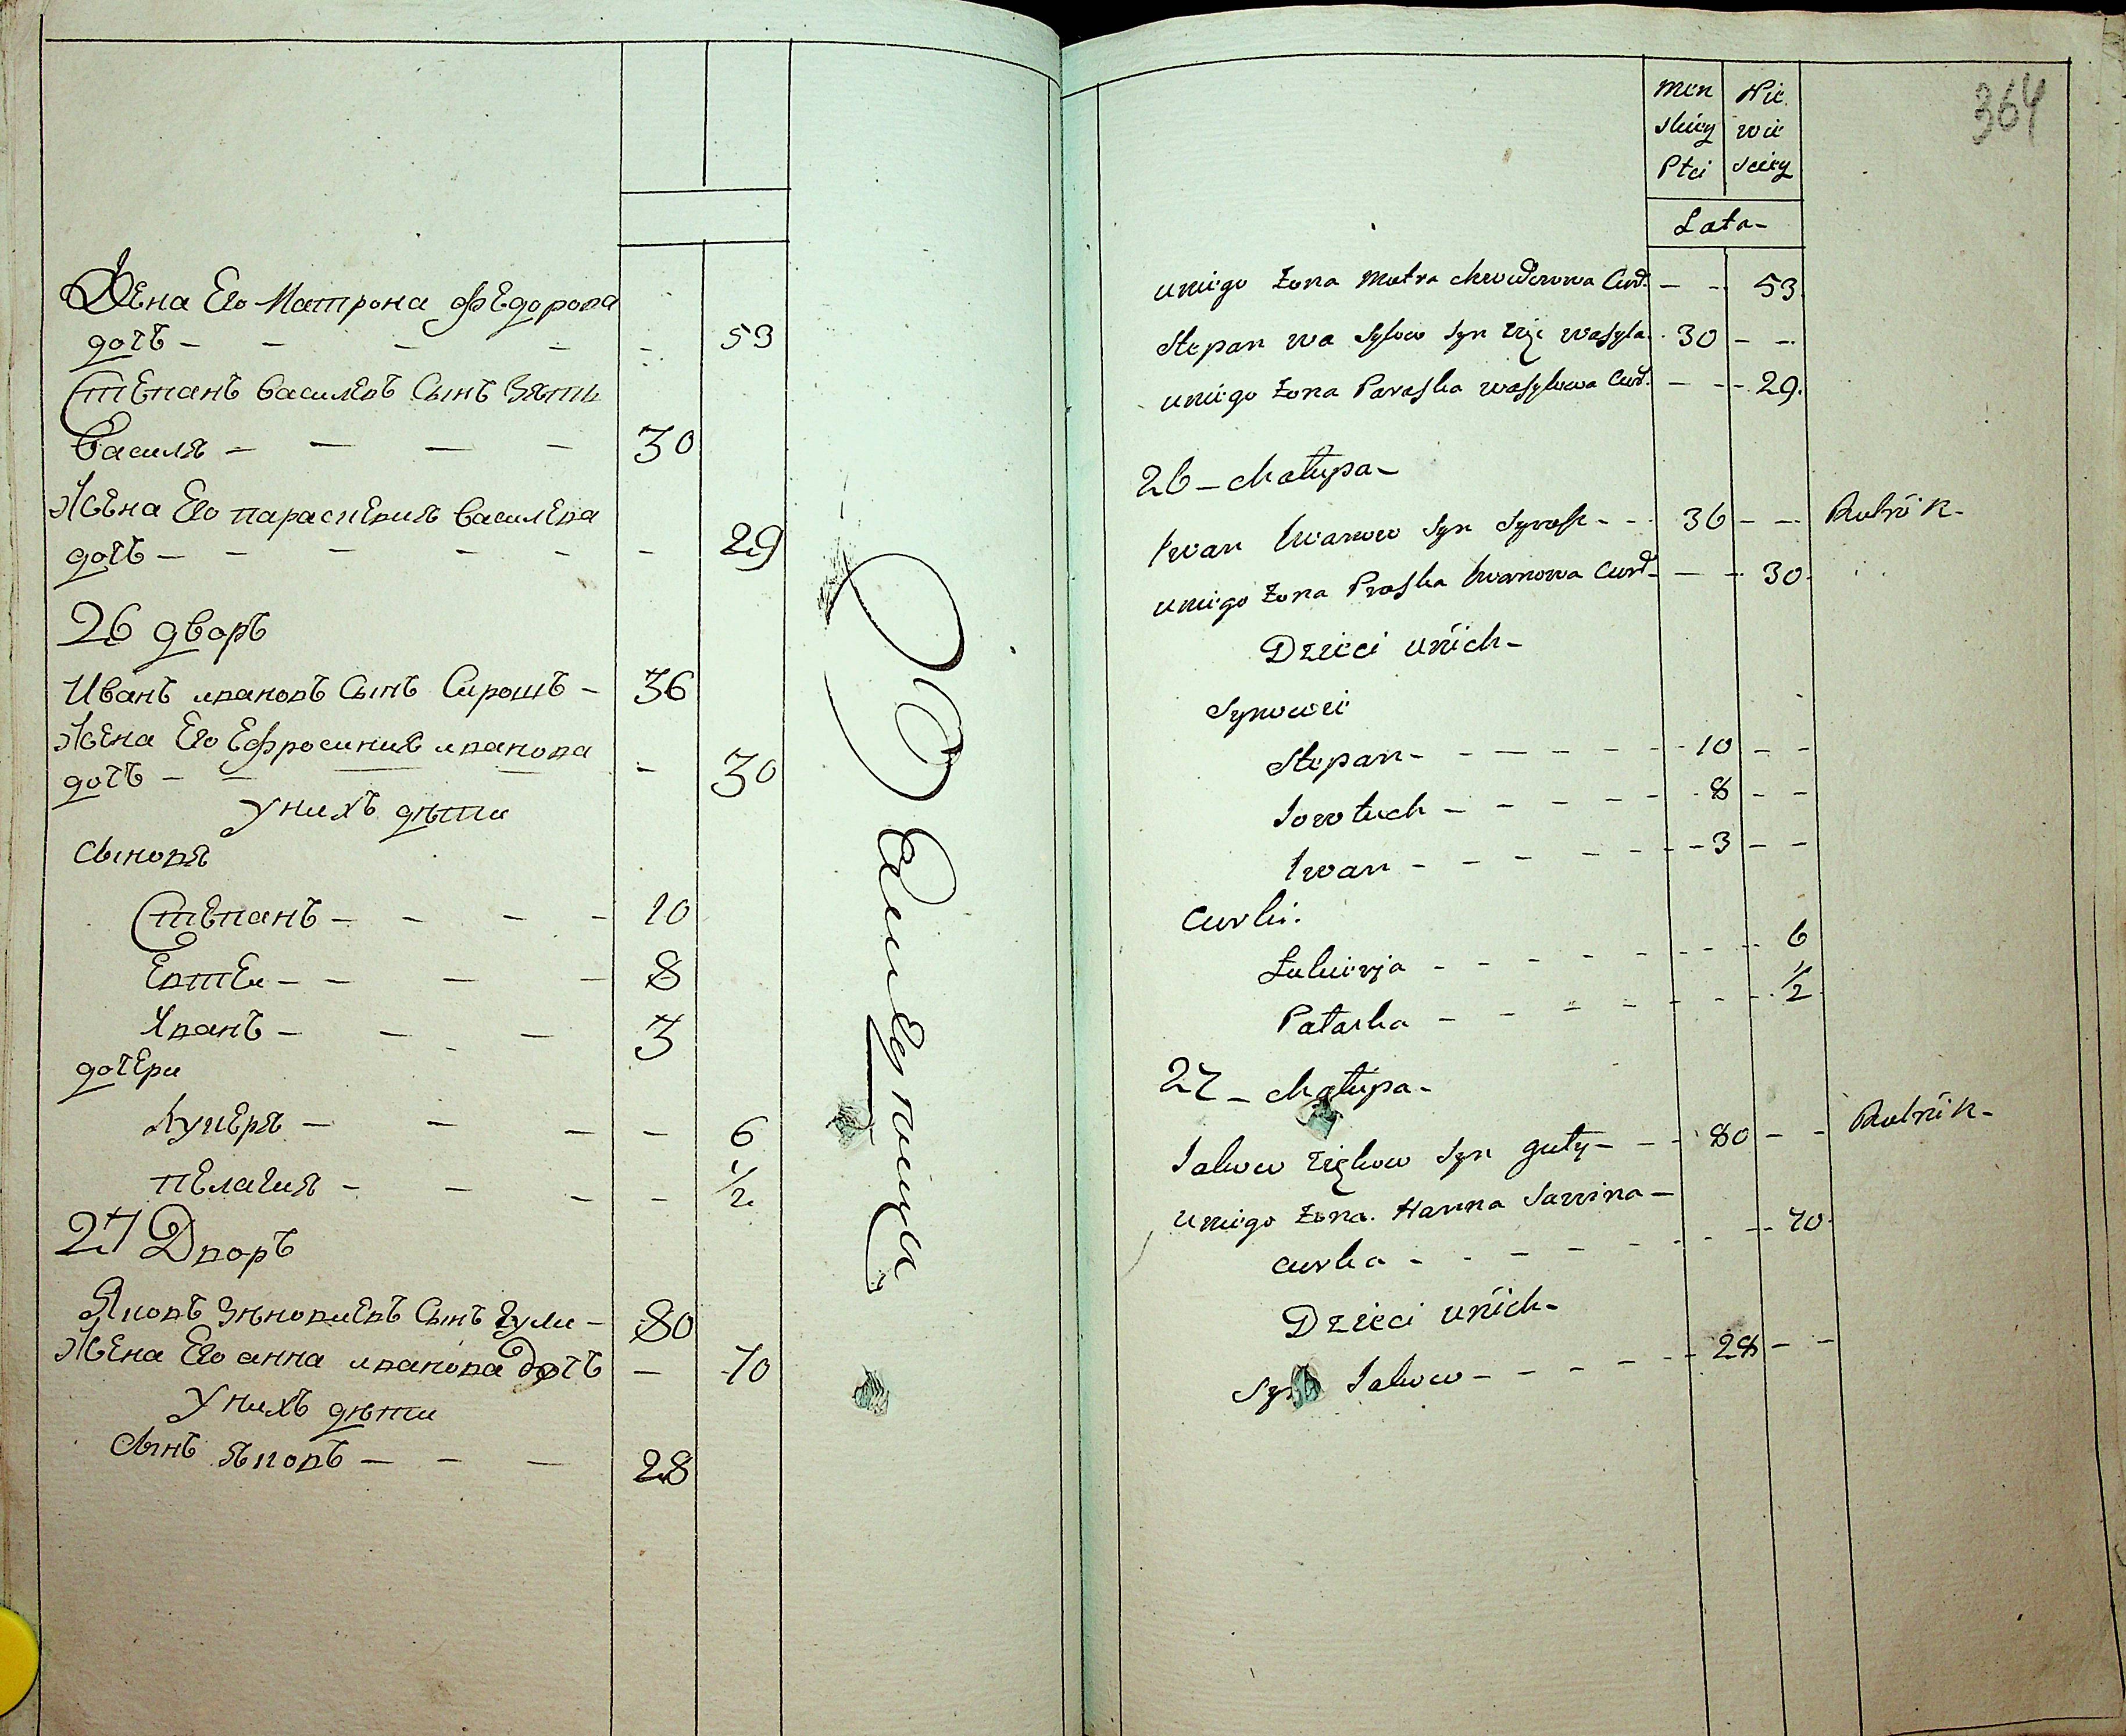 Жена Его Матрона Федорова
дочь - - - - - 53
Степанъ василевъ Сынъ Зять
василя - - - - 30
Жена Его параскевия василева
дочь - - - - - - 29
26 дворъ
Иванъ ивановъ Сынъ Сирошъ - 36
Жена Его Ефросиния иванова
дочь - - - - - 30
У нихъ дѣти
Сыновя
Степанъ - - - - 10
Евтеи - - - - 8
Иванъ - - - 3
дочери
Лукеря - - - - 6
пелагия - - - - 1/2
27 Дворъ
Яковъ Зѣновиевъ Сынъ гули - 80
Жена Его анна иванова дочь - 70
У нихъ дѣти
Сынъ яковъ - - - 28
364
Men Nie
skiey wie
Płci sciey
Lata -
uniego Żona Motra Chwedorowa Curk. - - 53
Stepan wa sylow Syn Zięc wasyla. 30 - -
uniego Żona Paraska wasylowa Cur. - - 29.
26 - Chałupa -
Iwan Iwanow Syn Syrosz - - 36 - - Rolnik -
uniego Żona Proska Iwanowa Cur. - - 30.
Dzieci unich -
Synowie
Stepan - - - - - - 10 - -
Jowtuch - - - - - - 8 - -
Iwan - - - - - - 3 - -
Curki.
Łukierja - - - - - - - - 6
Pałaska - - - - - - - 1/2
27 - Chałupa -
Jakow Ziękow Syn guły - - - 80 - - Rolnik -
uniego Żona. Hanna Sawina -
curka - - - - - - - - 70.
Dzieci unich -
Syn Jakow - - - - - 28 - -